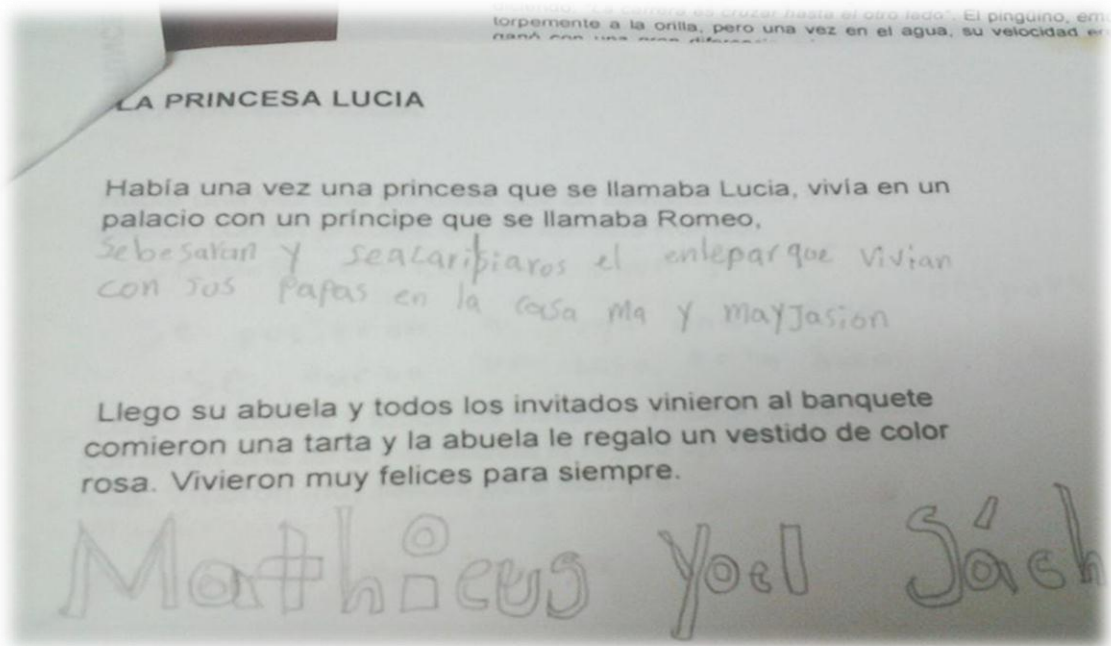 torpemente a la orilla, pero una vez en el agua, su velocidad
LA PRINCESA LUCIA
Había una vez una princesa que se llamaba Lucia, vivía en un
palacio con un príncipe que se llamaba Romeo,
sebesaran y seacarisiaros el enleparque vivian
con sus papas en la casa ma y mayJasion
Llego su abuela y todos los invitados vinieron al banquete
comieron una tarta y la abuela le regalo un vestido de color
rosa. Vivieron muy felices para siempre.
Mathieus Yoel Sách